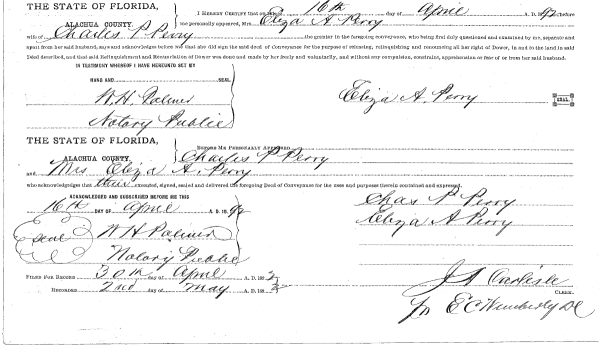 THE STATE OF FLORIDA,
ALACHUA COUNTY.
I HEREBY CERTIFY that on this 16th day of April A. D. 1892 before
me personally appeared, Mrs. Eliza A. Perry
wife of Charles P Perry the grantor in the foregoing conveyance, who being first duly questioned and examined by me, separate and
apart from her said husband, say and acknowledges before me that she did sign the said deed of Conveyance for the purpose of releasing, relinquishing and renouncing all her right of Dower, in and to the land in said
Deed described, and that said Relinquishment and Renunciation of Dower was done and made by her freely and voluntarily, and without any compulsion, constraint, apprehension or fear of or from her said husband.
IN TESTIMONY WHEREOF I HAVE HEREUNTO SET MY
HAND AND
W.H. Palmer
Notary Public
Eliza A. Perry SEAL
THE STATE OF FLORIDA,
ALACHUA COUNTY.
BEFORE ME PERSONALLY APPEARED
Charles P Perry
and Mrs Eliza A. Perry
who acknowledges that they executed, signed, sealed and delivered the foregoing Deed of Conveyance for the uses and purposes therein contained and expressed.
ACKNOWLEDGED AND SUBSCRIBED BEFORE ME THIS
16th DAY OF April A. D. 1892
Chas P Perry
Eliza A Perry
Seal
W H Palmer
Notary Public
FILED FOR RECORD 30th day of April A. D. 1892
RECORDED 2nd day of May A. D. 1892
J A Carlisle
CLERK.
Pr E C Wimberly DC